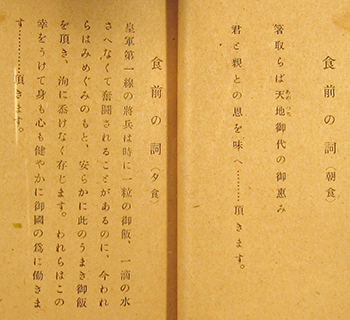 食前の詞（朝食）
箸取らば天地御代の御惠み
あめ つち
君と親との恩を味へ……頂きます。
食前の詞（夕食）
皇軍第一線の將兵は時に一粒の御飯、一滴の水
さへなくて奮鬪されることがあるのに、今われ
らはみめぐみのもと、安らかに此のうまき御飯
を頂き、洵に忝けなく存じます。われらはこの
幸をうけて身も心も健やかに御國の爲に働きま
す………頂きます。